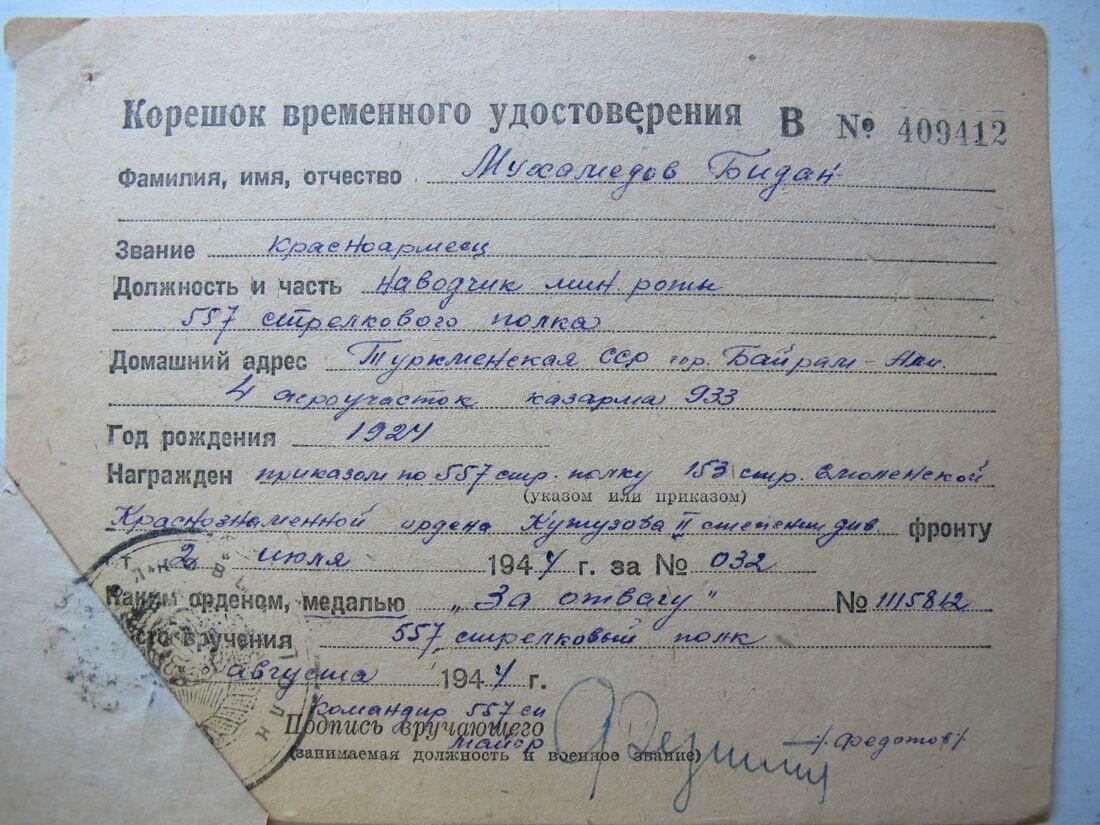 Корешок временного удостоверения В № 409412
Фамилия, имя, отчество Мухамедов Бидан
Звание Красноармеец
Должность и часть наводчик мин. роты
557 стрелкового полка
Домашний адрес Туркменская ССР гор. Байрам-Али.
4 агроучасток казарма 933
Год рождения 1924
Награжден приказом по 557 стр. полку 153 стр. Смоленской
(указом или приказом)
Краснознаменной ордена Кутузова II степени див. фронту
2 июля 1944 г. за № 032
Каким орденом, медалью „За отвагу" № 1115812
вручения 557 стрелковый полк
августа 1944 г.
Командир 557 сп
Подпись вручающего
майор /Федотов/
(занимаемая должность и военное звание)